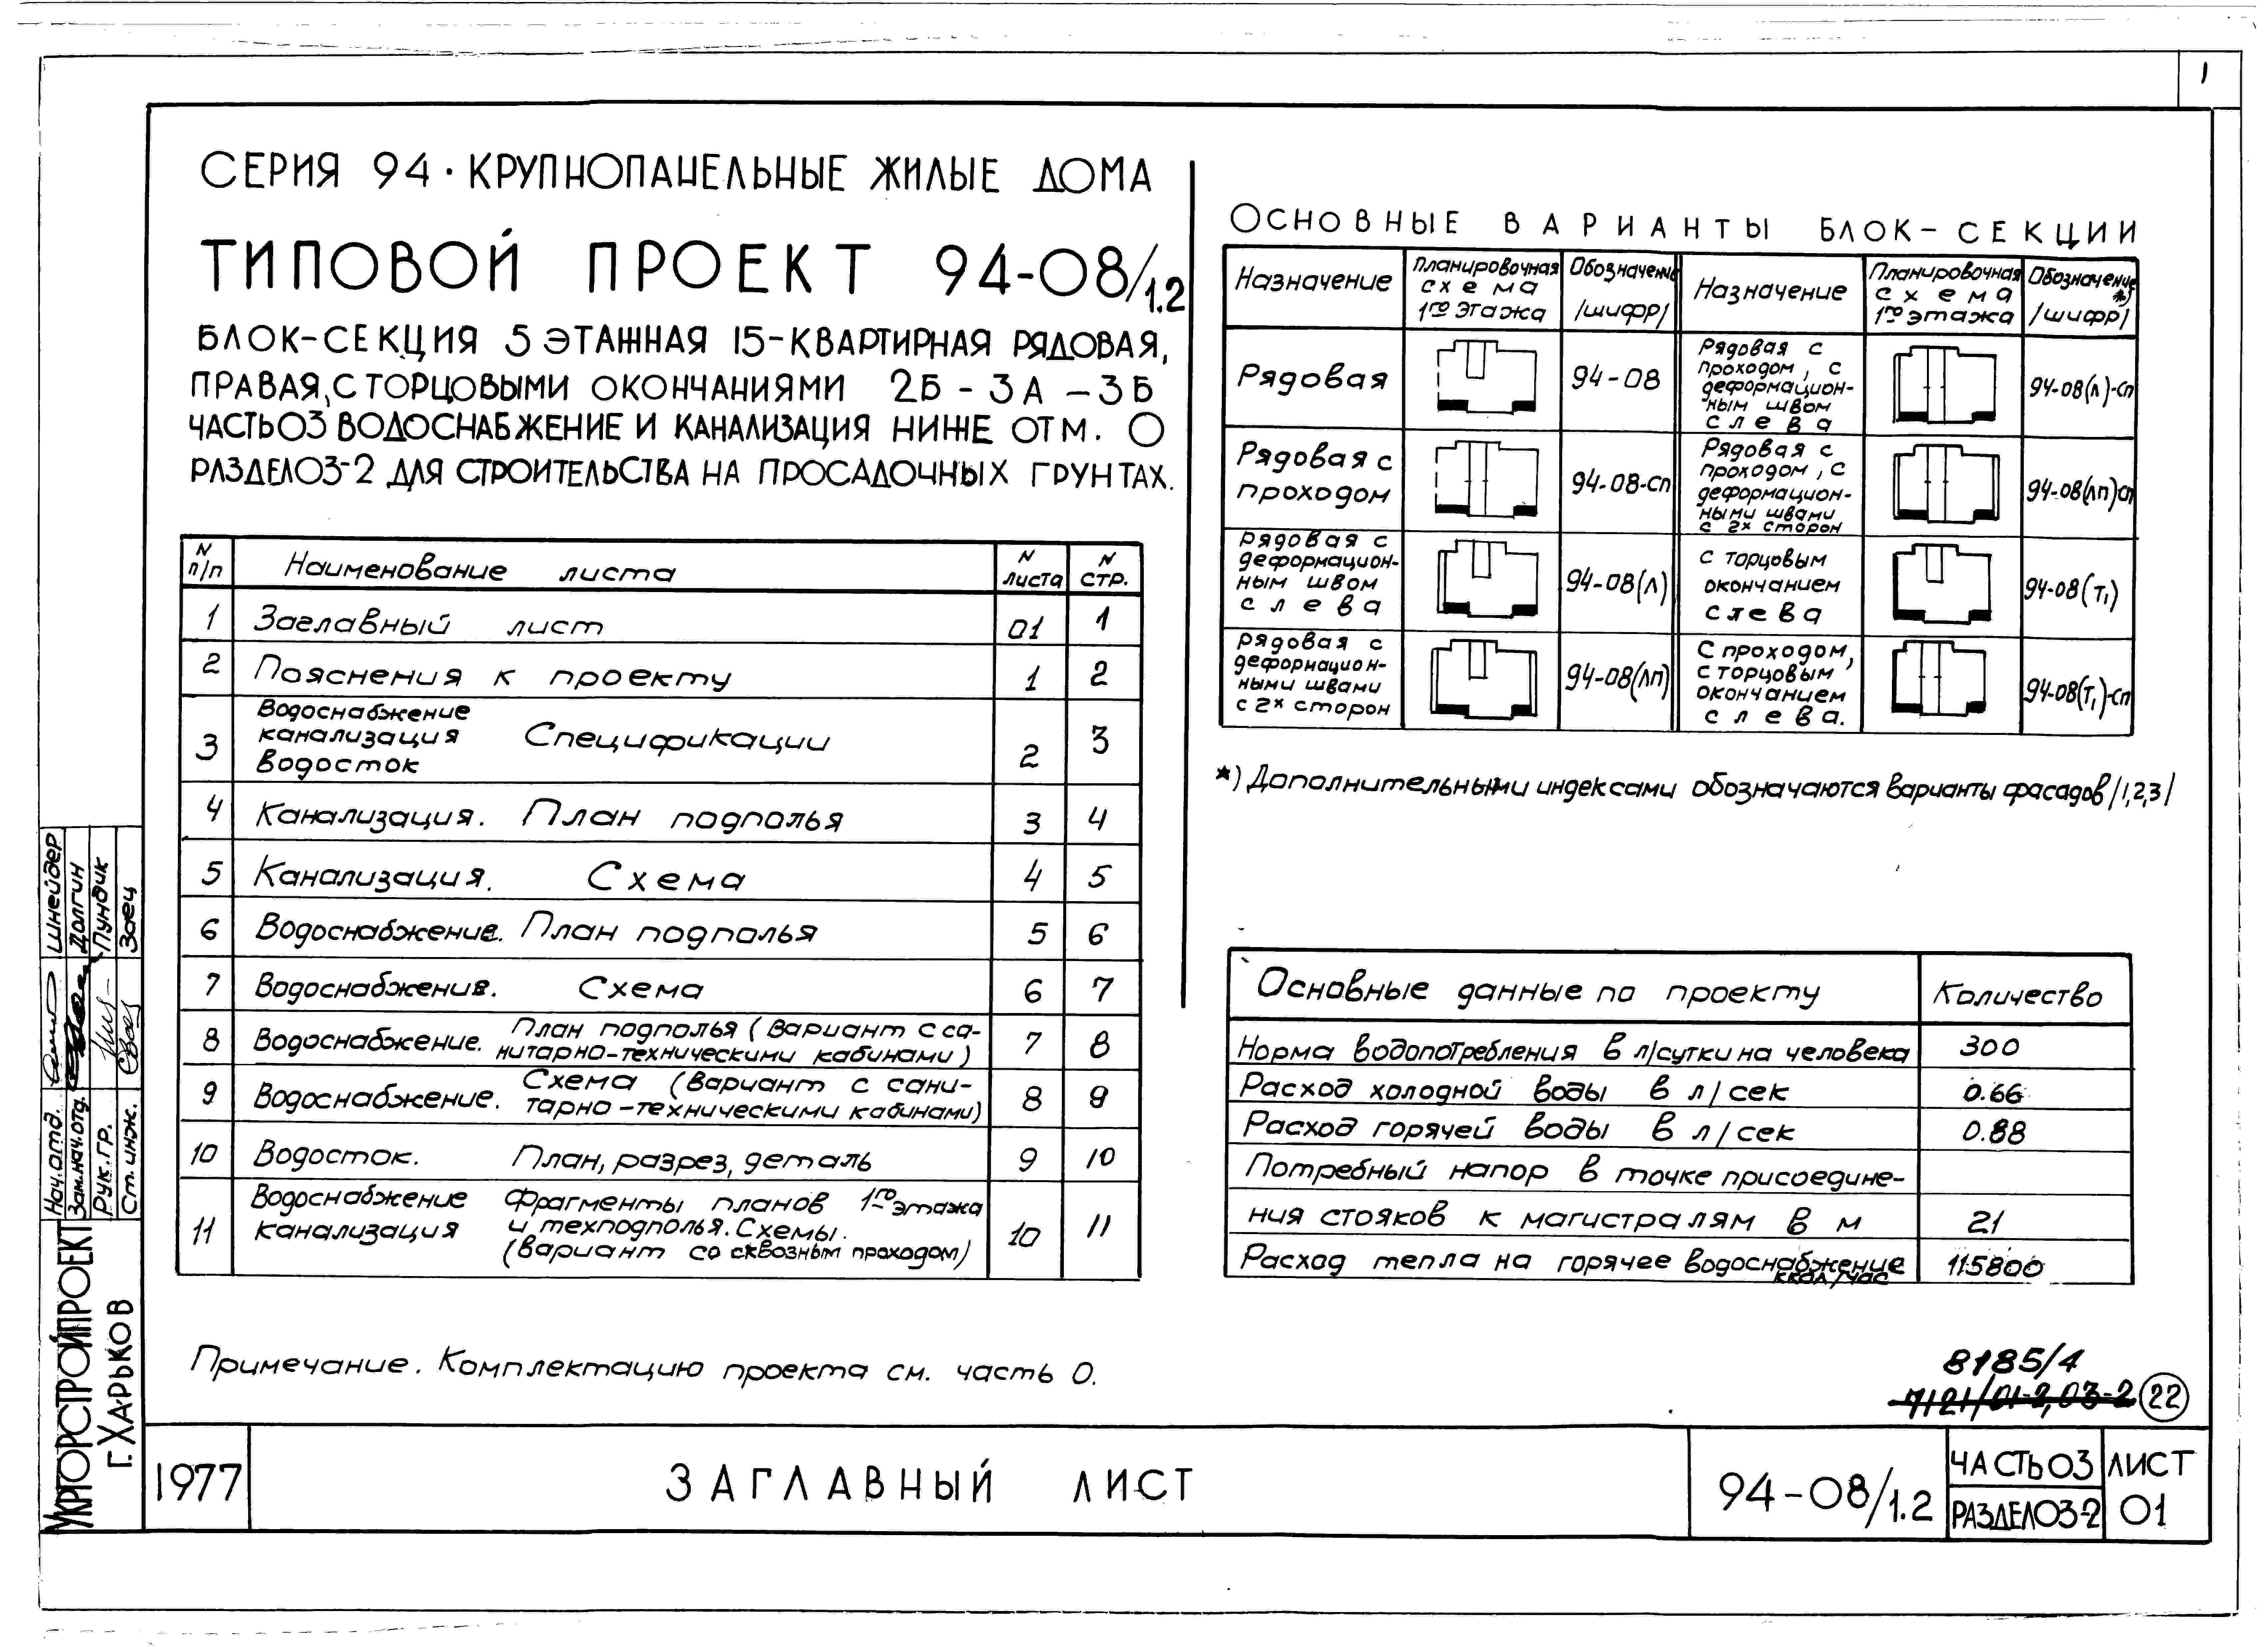 1
СЕРИЯ 94 · КРУПНОПАНЕЛЬНЫЕ ЖИЛЫЕ ДОМА
ТИПОВОЙ ПРОЕКТ 94-08/1.2
БЛОК-СЕКЦИЯ 5 ЭТАЖНАЯ 15-КВАРТИРНАЯ РЯДОВАЯ,
ПРАВАЯ, С ТОРЦОВЫМИ ОКОНЧАНИЯМИ 2Б - 3А - 3Б
ЧАСТЬ 03 ВОДОСНАБЖЕНИЕ И КАНАЛИЗАЦИЯ НИЖЕ ОТМ. 0
РАЗДЕЛ 03-2 ДЛЯ СТРОИТЕЛЬСТВА НА ПРОСАДОЧНЫХ ГРУНТАХ.
N п/п Наименование листа N листа N СТР.
1 Заглавный лист 01 1
2 Пояснения к проекту 1 2
3 Водоснабжение канализация Водосток Спецификации 2 3
4 Канализация. План подполья 3 4
5 Канализация. Схема 4 5
6 Водоснабжение. План подполья 5 6
7 Водоснабжение. Схема 6 7
8 Водоснабжение. План подполья (вариант с са-
нитарно-техническими кабинами) 7 8
9 Водоснабжение. Схема (вариант с сани-
тарно-техническими кабинами) 8 9
10 Водосток. План, разрез, деталь 9 10
11 Водоснабжение канализация Фрагменты планов 1го этажа
и техподполья. Схемы.
(вариант со сквозным проходом) 10 11
Примечание. Комплектацию проекта см. часть 0.
ОСНОВНЫЕ ВАРИАНТЫ БЛОК-СЕКЦИИ
Назначение Планировочная схема 1го этажа Обозначение /шифр/ Назначение Планировочная схема 1го этажа Обозначение *) /шифр/
Рядовая 94-08
Рядовая с проходом, с деформацион-
ным швом слева 94-08(Л)-СП
Рядовая с проходом 94-08-СП
Рядовая с проходом, с деформацион-
ными швами с 2х сторон 94-08(ЛП)СП
Рядовая с деформацион-
ным швом слева 94-08(Л)
С торцовым окончанием слева 94-08(Т1)
Рядовая с деформацион-
ными швами с 2х сторон 94-08(ЛП)
С проходом, с торцовым окончанием слева. 94-08(Т1)-СП
*) Дополнительными индексами обозначаются варианты фасадов /1,2,3/
Основные данные по проекту Количество
Норма водопотребления в л/сутки на человека 300
Расход холодной воды в л/сек 0.66
Расход горячей воды в л/сек 0.88
Потребный напор в точке присоедине-
ния стояков к магистралям в м 21
Расход тепла на горячее водоснабжение ккал/час 115800
8185/4
7121/01-2,03-2 22
Нач. отд. Шнейдер
Зам. нач. отд. Долгин
Рук. гр. Пундик
Ст. инж. Заец
УКРГОРСТРОЙПРОЕКТ
г. ХАРЬКОВ
1977 ЗАГЛАВНЫЙ ЛИСТ 94-08/1.2 ЧАСТЬ 03 РАЗДЕЛ 03-2 ЛИСТ 01